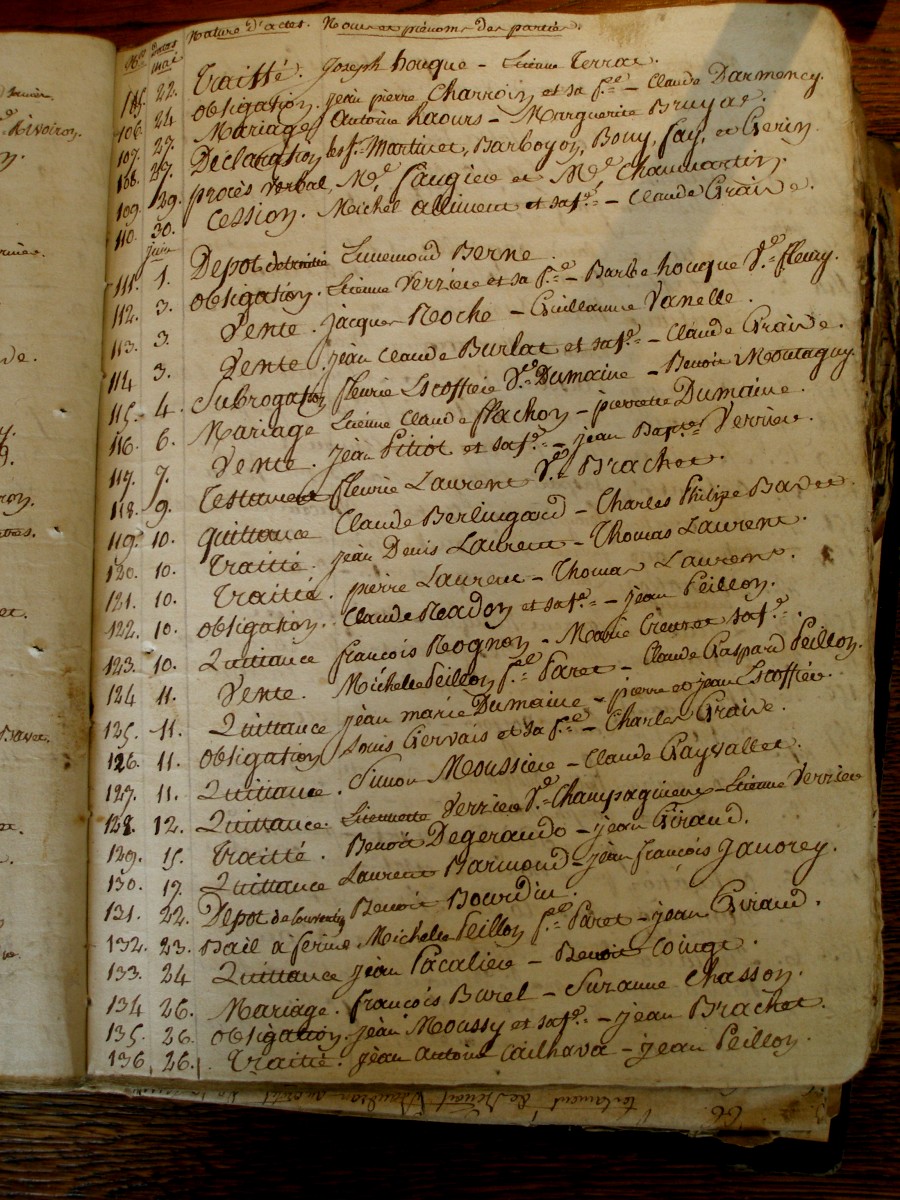 Nos Dates Nature d'actes. Noms et prénoms des parties.
mai
105. 22. Traitté. Joseph houque - Etienne Terrac.
106. 24. obligation. jean pierre Charroin et sa fe. - Claude Darmency.
107. 27. Mariage Antoine haours - Marguerite Bruyas.
108. 27. Déclaration les Srs Martinet, Barboyon, Bouy, fay, et Gerin.
109. 29. procès verbal, Me. faugiere et Me. Chaumartin.
110. 30. Cession. Michel alliment et sa fe. - Claude Graine.
juin
111. 1. Depot de traitté Ennemond Berne.
112. 3. obligation. Etienne Verriere et sa fe. - Barbe houque Ve. fleury.
113. 3. Vente. jacques Roche - Guillaume Vanelle.
114 3. Vente. jean Claude Burlat et sa fe. - Claude Graine.
115. 4. Subrogation fleurie Escoffiere Ve. Dumaine - Benoit Montaguy.
116. 6. Mariage Etienne Claude flachon - pierrette Dumaine.
117. 7. Vente. jean Pitiot et sa fe. - jean Bapte. Verriere.
118. 9. Testament fleurie Laurent Ve. Brachet.
119. 10. quittance Claude Berlingard - Charles Philipe Bavet.
120. 10. Traitté. jean Denis Laurent - Thomas Laurent.
121. 10. Traitté. pierre Laurent - Thomas Laurent.
122. 10. obligation. Claude Readon et sa fe. - jean Peillon.
123. 10. Quittance françois Rognon - Marie et sa fe.
124 11. Vente. Michelle Peillon fe. Paret - Claude Gaspard Peillon.
125. 11. Quittance jean marie Dumaine - pierre et jean Escoffier.
126. 11. obligation Louis Gervais et sa fe. - Charles Graine.
127. 11. Quittance. Simon Moussiere - Claude Gayvallet.
128. 12. Quittance. Etiennette Verriere Ve. Champagnieux - Etienne Verriere
129. 15. Traitté. Benoit Degeraudo - jean Giraud.
130. 17. Quittance Laurent Barmond - jean françois Janorey.
131. 22. Depot de Benoit Bourdin.
132. 23. Bail à ferme Michelle Peillon fe. Paret - jean Giraud.
133. 24 Quittance jean Pacaliere - Benoit Coinge.
134 26. Mariage. françois Burel - Suzanne Chasson.
135. 26. obligation. jean Moussy et sa fe. - jean Brachet.
136 26. Traitté. jean antoine Cailhava - jean Peillon.